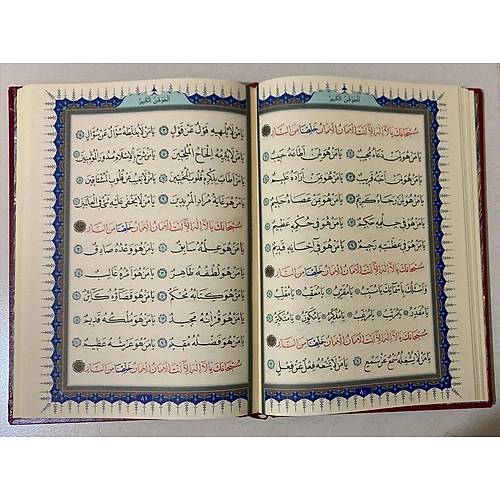 اَلْجَوْشَنُ الْكَبِيرُ
سُبْحَانَكَ يَا لَا اِلٰهَ اِلَّا اَنْتَ الْاَمَانُ الْاَمَانُ خَلِّصْنَا مِنَ النَّارِ
يَا مَنْ هُوَ لِمَنْ دَعَاهُ مُجِيبٌ يَا مَنْ هُوَ لِمَنْ اَطَاعَهُ حَبِيبٌ
يَا مَنْ هُوَ اَحَبَّهُ قَرِيبٌ يَا مَنْ هُوَ بِمَنْ اَرَادَهُ عَلِيمٌ
يَا مَنْ هُوَ لِمَنْ رَجَاهُ كَرِيمٌ يَا مَنْ هُوَ بِمَنْ عَصَاهُ حَلِيمٌ
يَا مَنْ هُوَ فِي حِلْمِهِ حَكِيمٌ يَا مَنْ هُوَ فِي حُكْمِهِ عَظِيمٌ
يَا مَنْ هُوَ فِي عَظَمَتِهِ رَحِيمٌ يَا مَنْ هُوَ فِي اِحْسَانِهِ قَدِيمٌ
سُبْحَانَكَ يَا لَا اِلٰهَ اِلَّا اَنْتَ الْاَمَانُ الْاَمَانُ خَلِّصْنَا مِنَ النَّارِ
وَاَسْئَلُكَ بِاَسْمَائِكَ يَا مُسَبِّبُ يَا مُقَرِّبُ يَا مُعَقِّبُ يَا مُقَلِّبُ
يَا مُقَدِّرُ يَا مُرَتِّبُ يَا مُرَغِّبُ يَا مُذَكِّرُ يَا مُكَوِّنُ يَا مُتَكَبِّرُ
سُبْحَانَكَ يَا لَا اِلٰهَ اِلَّا اَنْتَ الْاَمَانُ الْاَمَانُ خَلِّصْنَا مِنَ النَّارِ
يَا مَنْ لَا يَشْغَلُهُ سَمْعٌ عَنْ سَمْعٍ يَا مَنْ لَا يَمْنَعُهُ فِعْلٌ عَنْ فِعْلٍ
٨٠
اَلْجَوْشَنُ الْكَبِيرُ
يَا مَنْ لَا يُلْهِيهِ قَوْلٌ عَنْ قَوْلٍ يَا مَنْ لَا يُغَلِّطُهُ سُؤَالٌ عَنْ سُؤَالٍ
يَا مَنْ لَا يُبْرِمُهُ اِلْحَاحُ الْمُلِحِّينَ يَا مَنْ شَرَحَ بِالْاِسْلَامِ صُدُورَ الْمُؤْمِنِينَ
يَا مَنْ اَطَابَ بِذِكْرِهِ قُلُوبَ الْمُخْبِتِينَ يَا مَنْ لَا يَغِيبُ عَنْ قُلُوبِ الْمُشْتَاقِينَ
يَا مَنْ هُوَ غَايَةُ مُرَادِ الْمُرِيدِينَ يَا مَنْ لَا يَخْفٰى عَلَيْهِ شَيْءٌ فِي الْعَالَمِينَ
سُبْحَانَكَ يَا لَا اِلٰهَ اِلَّا اَنْتَ الْاَمَانُ الْاَمَانُ خَلِّصْنَا مِنَ النَّارِ
يَا مَنْ هُوَ عِلْمُهُ سَابِقٌ يَا مَنْ هُوَ وَعْدُهُ صَادِقٌ
يَا مَنْ هُوَ لُطْفُهُ ظَاهِرٌ يَا مَنْ هُوَ اَمْرُهُ غَالِبٌ
يَا مَنْ هُوَ كِتَابُهُ مُحْكَمٌ يَا مَنْ هُوَ قَضَاؤُهُ كَائِنٌ
يَا مَنْ هُوَ قُرْاٰنُهُ مَجِيدٌ يَا مَنْ هُوَ مُلْكُهُ قَدِيمٌ
يَا مَنْ هُوَ فَضْلُهُ مُقِيمٌ يَا مَنْ هُوَ عَرْشُهُ عَظِيمٌ
سُبْحَانَكَ يَا لَا اِلٰهَ اِلَّا اَنْتَ الْاَمَانُ الْاَمَانُ خَلِّصْنَا مِنَ النَّارِ
٨١